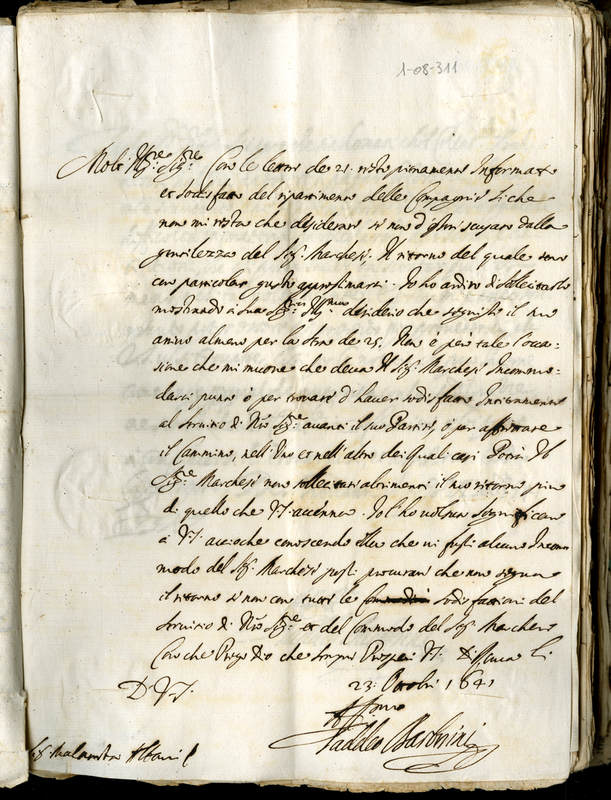 1-08-311
Molt' Ill.re Sig.re Con le lettere de 21. resto pienamente Informato
et sodisfatto del ripartimento delle Compagnie si che
non mi resta che desiderare se non d'esser scusato dalla
gentilezza del Sig. Marchesi. Il ritorno del quale sento
con particolar gusto approssimarsi. Io ho ardito di sollecitarlo
mostrando à Sua desiderio che seguisse il suo
arrivo almeno per la sera de 25. Non è però tale l'occa-
sione che mi muove che deva Il Sig. Marchesi Incommo-
darsi punto ò per trovarsi d'haver sodisfatto Intieramente
al servitio di N.ro Sig.re avanti il suo Partire, ò per affrettare
il Cammino, nell'Uno et nell'altro dei quali casi Potrà Il
Sig.re Marchesi non sollecitare altrimenti il suo ritorno più
di quello che V.S. accenna. Io l'ho voluto significare
à V.S. acciochè conoscendo ella che vi fusse alcuno Incom
modo del Sig. Marchesi possa procurare che non segua
il ritorno se non con tutte le sodisfationi del
servitio di N.ro Sig.re et del Commodo del Sig. Marchese
Con che Prego Dio che sempre Prosperi V.S. Di li
23. Ottobre 1641
D. V.S.
Taddeo Barberini
Sig. Malatesta Albani